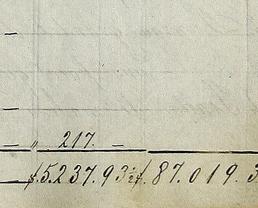 „ 217. –
$5.237.93½ $.87.019.3